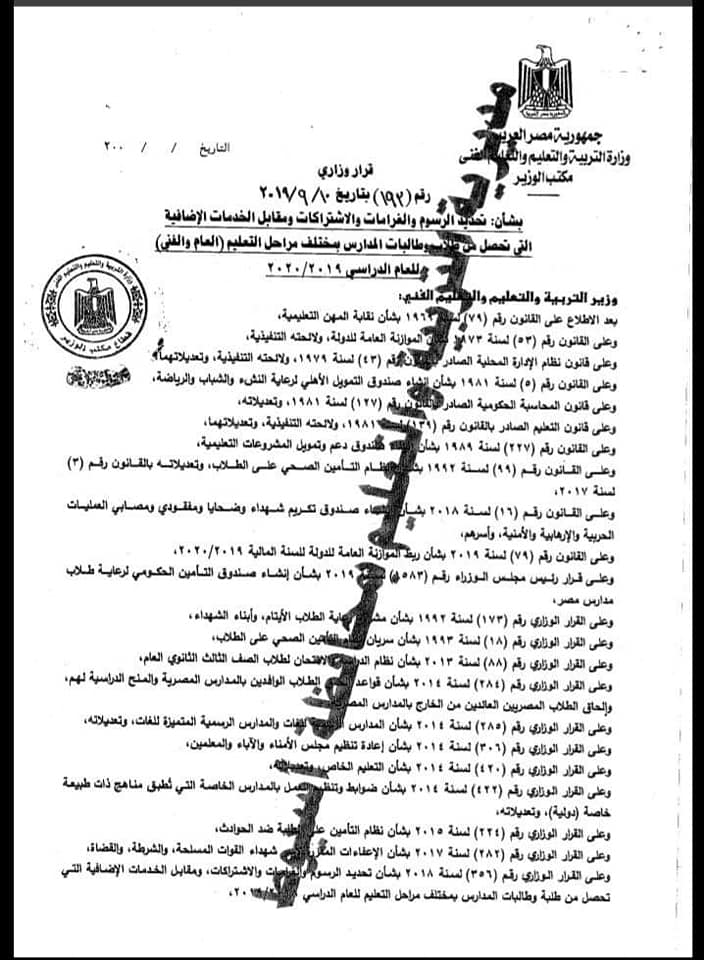 جمهورية مصر العربية
وزارة التربية والتعليم والتعليم الفنى
مكتب الوزير
التاريخ / / ٢٠٠
قرار وزاري
رقم (١٩٢) بتاريخ ١٠/ ٩ /٢٠١٩
بشأن: تحديد الرسوم والغرامات والاشتراكات ومقابل الخدمات الإضافية
التى تحصل من طلاب وطالبات المدارس بمختلف مراحل التعليم (العام والفني)
للعام الدراسي ٢٠٢٠/٢٠١٩
وزير التربية والتعليم والتعليم الفني:
بعد الاطلاع على القانون رقم (٧٩) لسنة ١٩٦٩ بشأن نقابة المهن التعليمية،
وعلى القانون رقم (٥٣) لسنة ١٩٧٣ بشأن الموازنة العامة للدولة، ولائحته التنفيذية،
وعلى قانون نظام الإدارة المحلية الصادر بالقانون رقم (٤٣) لسنة ١٩٧٩، ولائحته التنفيذية، وتعديلاتهما،
وعلى القانون رقم (٥) لسنة ١٩٨١ بشأن إنشاء صندوق التمويل الأهلي لرعاية النشء والشباب والرياضة،
وعلى قانون المحاسبة الحكومية الصادر بالقانون رقم (١٢٧) لسنة ١٩٨١، وتعديلاته،
وعلى قانون التعليم الصادر بالقانون رقم (١٣٩) لسنة ١٩٨١، ولائحته التنفيذية، وتعديلاتهما،
وعلى القانون رقم (٢٢٧) لسنة ١٩٨٩ بشأن إنشاء صندوق دعم وتمويل المشروعات التعليمية،
وعلى القانون رقم (٩٩) لسنة ١٩٩٢ بشأن نظام التأمين الصحي على الطلاب، وتعديلاته بالقانون رقم (٣)
لسنة ٢٠١٧،
وعلى القانون رقم (١٦) لسنة ٢٠١٨ بشأن إنشاء صندوق تكريم شهداء وضحايا ومفقودي ومصابي العمليات
الحربية والإرهابية والأمنية، وأسرهم،
وعلى القانون رقم (٧٩) لسنة ٢٠١٩ بشأن ربط الموازنة العامة للدولة للسنة المالية ٢٠٢٠/٢٠١٩،
وعلى قرار رئيس مجلس الوزراء رقم لسنة ٢٠١٩ بشأن إنشاء صندوق التأمين الحكومي لرعاية طلاب
مدارس مصر،
وعلى القرار الوزاري رقم (١٧٣) لسنة ١٩٩٢ بشأن مشروع رعاية الطلاب الأيتام، وأبناء الشهداء،
وعلى القرار الوزاري رقم (١٨) لسنة ١٩٩٣ بشأن سريان نظام التأمين الصحي على الطلاب،
وعلى القرار الوزاري رقم (٨٨) لسنة ٢٠١٣ بشأن نظام الدراسة والامتحان لطلاب الصف الثالث الثانوي العام،
وعلى القرار الوزاري رقم (٢٨٤) لسنة ٢٠١٤ بشأن قواعد الطلاب الوافدين بالمدارس المصرية والمنح الدراسية لهم،
وإلحاق الطلاب المصريين العائدين من الخارج بالمدارس المصرية
وعلى القرار الوزاري رقم (٢٨٥) لسنة ٢٠١٤ بشأن المدارس الرسمية للغات والمدارس الرسمية المتميزة للغات، وتعديلاته،
وعلى القرار الوزاري رقم (٣٠٦) لسنة ٢٠١٤ بشأن إعادة تنظيم مجلس الأمناء والآباء والمعلمين،
وعلى القرار الوزاري رقم (٤٢٠) لسنة ٢٠١٤ بشأن التعليم الخاص، وتعديلاته،
وعلى القرار الوزاري رقم (٤٢٢) لسنة ٢٠١٤ بشأن ضوابط وتنظيم العمل بالمدارس الخاصة التي تُطبق مناهج ذات طبيعة
خاصة (دولية)، وتعديلاته،
وعلى القرار الوزاري رقم (٢٢٤) لسنة ٢٠١٥ بشأن نظام التأمين على الطلبة ضد الحوادث،
وعلى القرار الوزاري رقم (٢٨٢) لسنة ٢٠١٧ بشأن الإعفاءات المقررة شهداء القوات المسلحة، والشرطة، والقضاة،
وعلى القرار الوزاري رقم (٣٥٦) لسنة ٢٠١٨ بشأن تحديد الرسوم والغرامات والاشتراكات، ومقابل الخدمات الإضافية التي
تحصل من طلبة وطالبات المدارس بمختلف مراحل التعليم للعام الدراسي
وزارة التربية والتعليم والتعليم الفني
قطاع مكتب الوزير
مديرية التربية والتعليم بمحافظة أسيوط